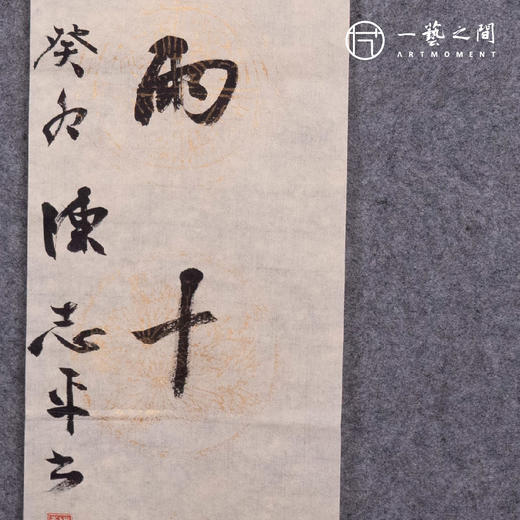 雨十
癸卯陳志平書
一藝之間
ARTMOMENT